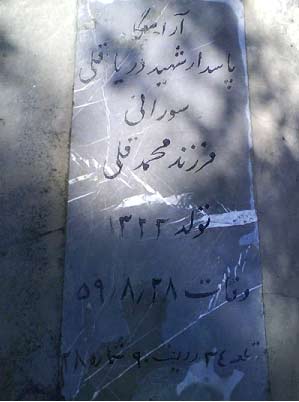 آرامگاه
پاسدار شهید دریا قلی
سورانی
فرزند محمد قلی
تولد ۱۳۲۳
وفات ۵۹/۸/۲۸
قطعه ۳۴ ردیف ۹۰ شماره ۲۸